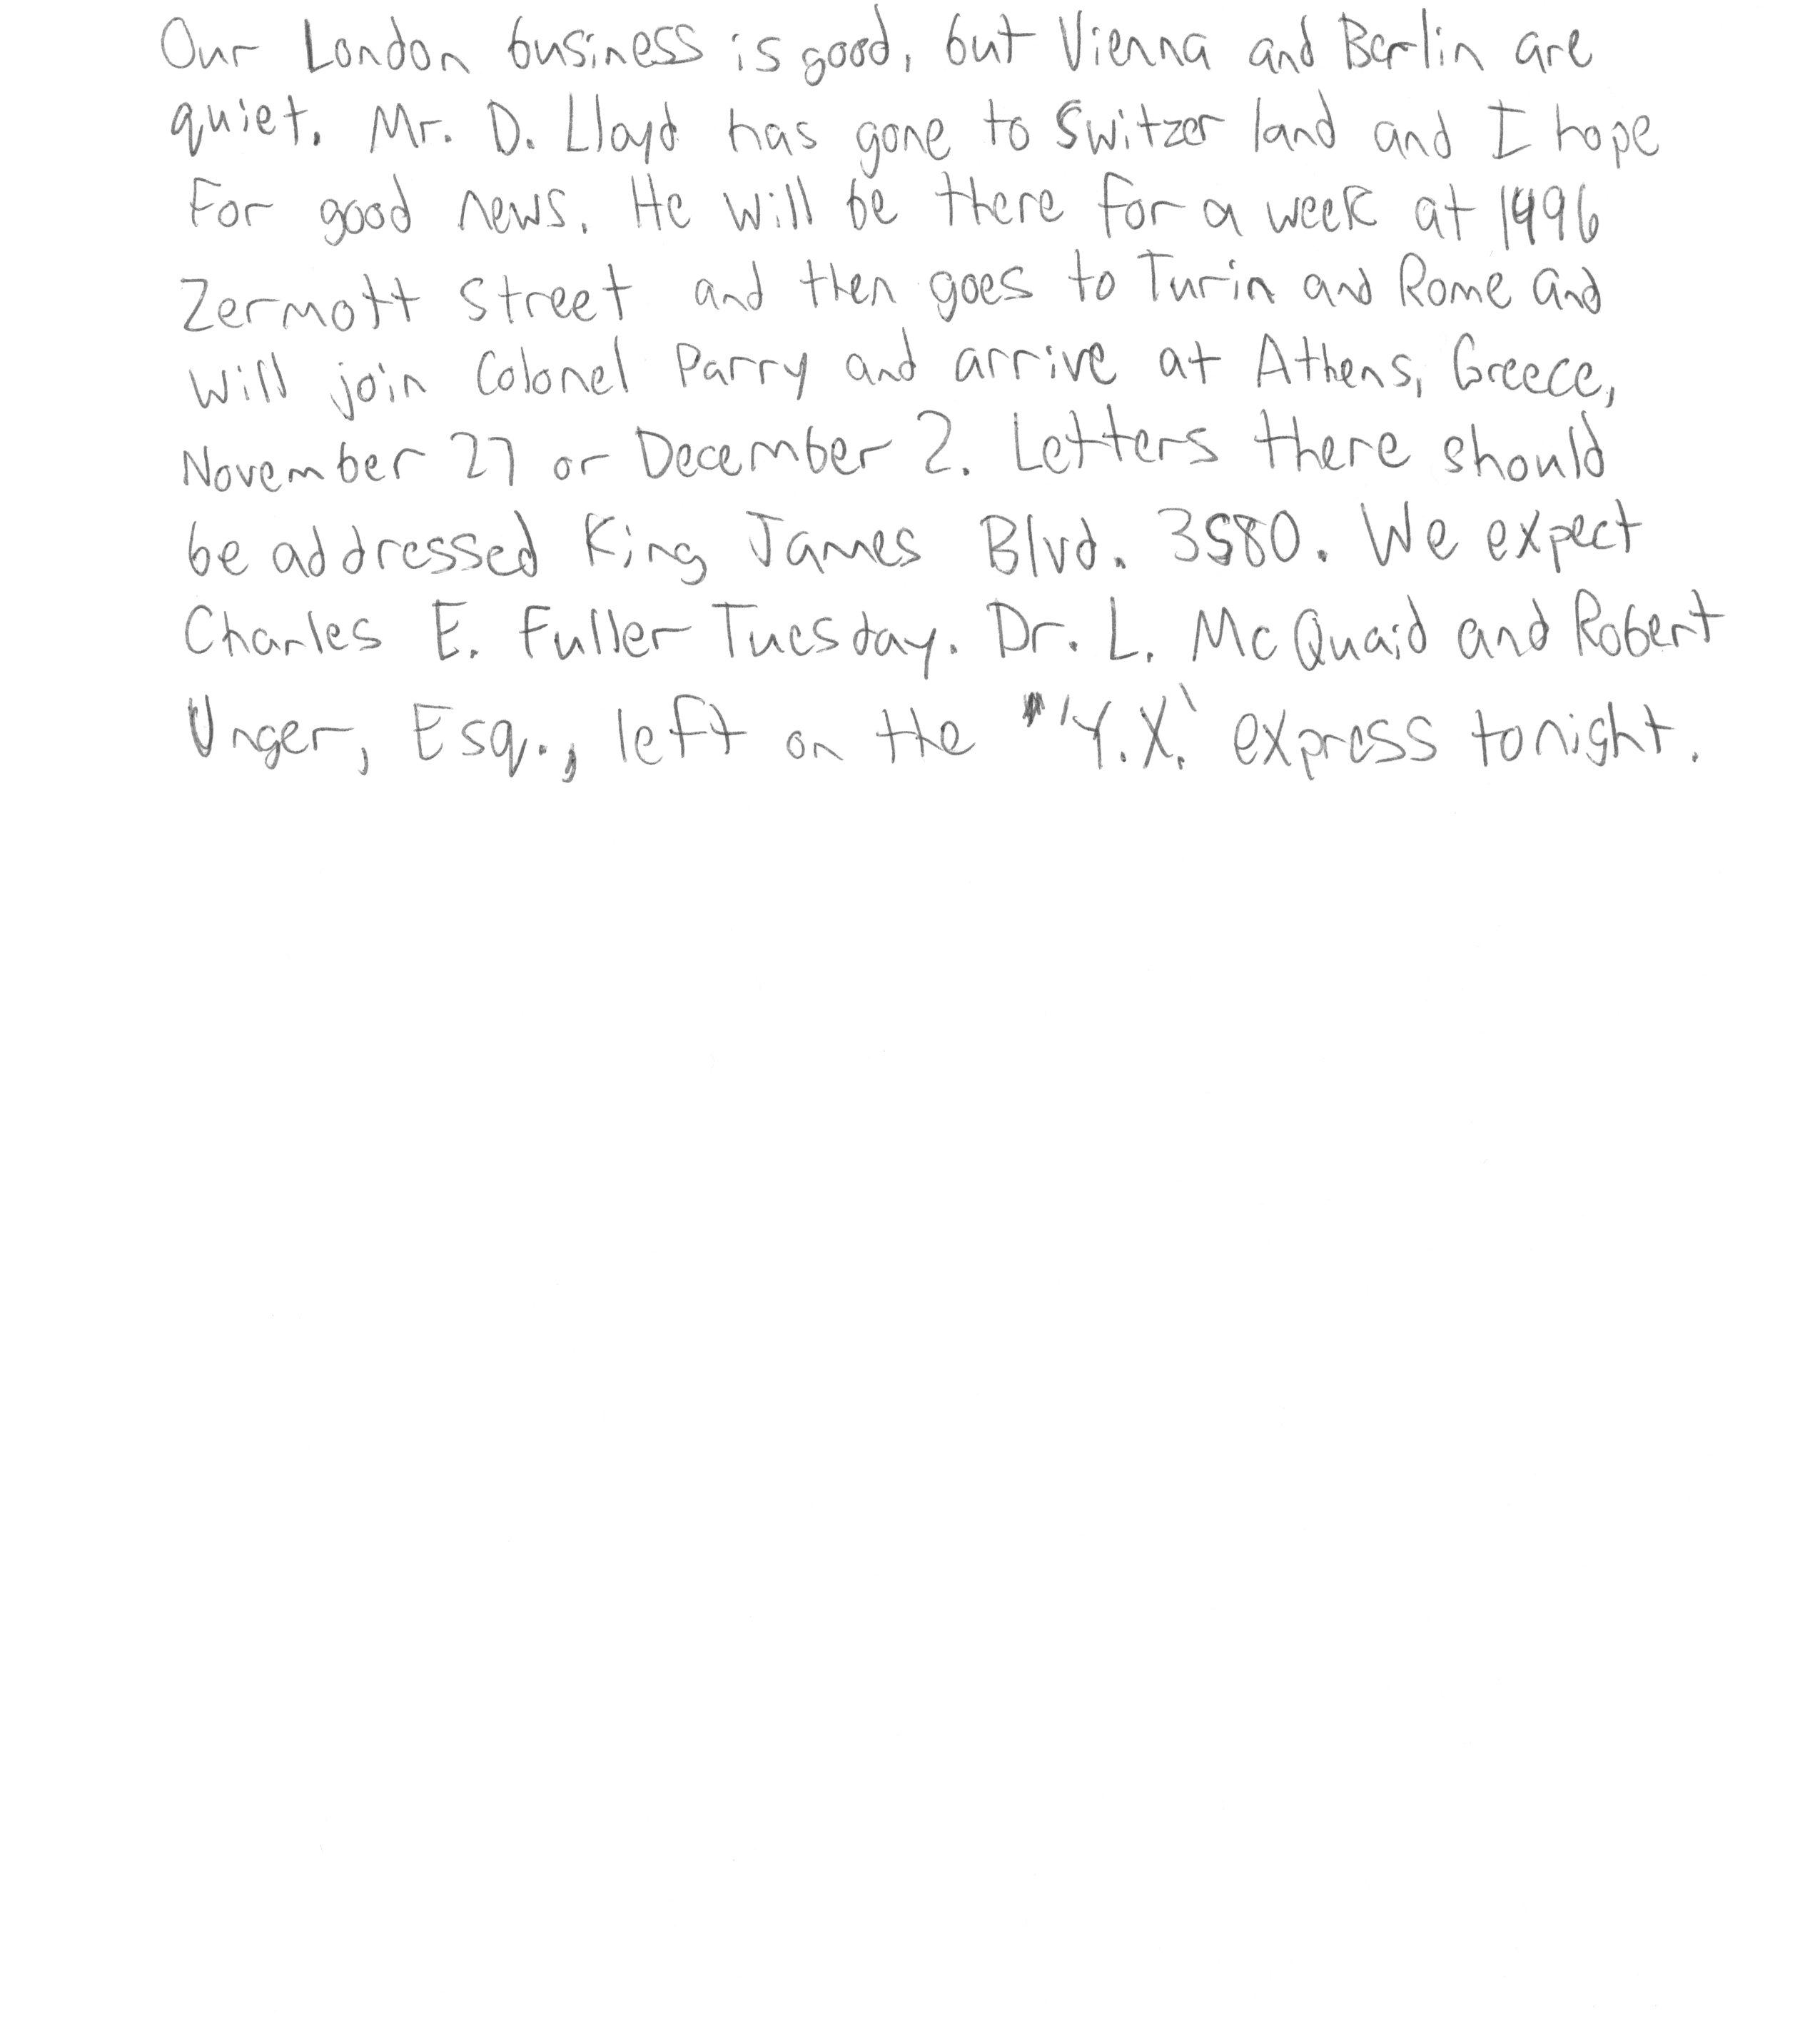 Our London business is good, but Vienna and Berlin are
quiet. Mr. D. Lloyd has gone to Switzerland and I hope
for good news. He will be there for a week at 1496
Zermott Street and then goes to Turin and Rome and
will join Colonel Parry and arrive at Athens, Greece,
November 27 or December 2. Letters there should
be addressed King James Blvd. 3580. We expect
Charles E. Fuller Tuesday. Dr. L. McQuaid and Robert
Unger, Esq., left on the 'Y.X.' express tonight.